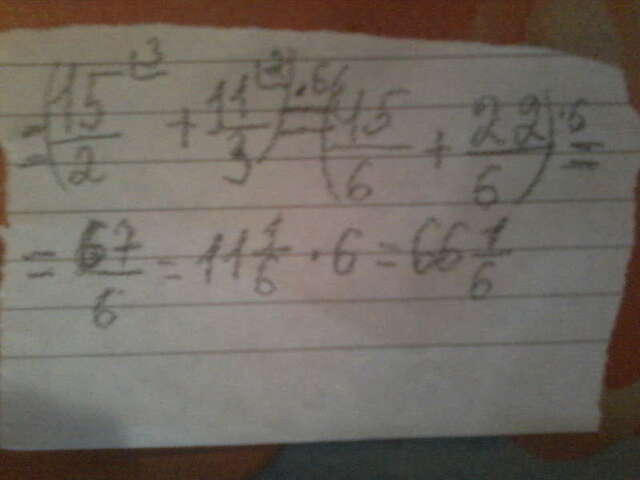 = (15/2 ⌊3 + 11/3 ⌊2) · 6 = (45/6 + 22/6) · 6 =
= 67/6 = 11 1/6 · 6 = 66 1/6